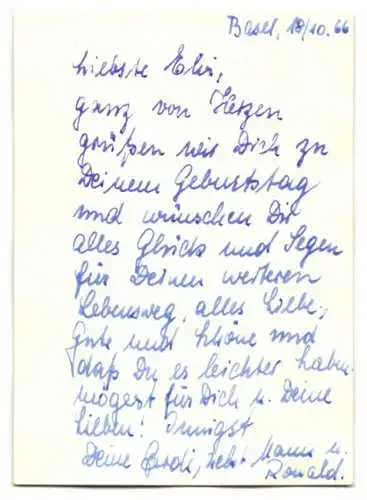 Basel, 18/10. 66
Liebste Elvi,
ganz von Herzen
grüßen wir Dich zu
Deinem Geburtstag
und wünschen Dir
alles Glück und Segen
für Deinen weiteren
Lebensweg, alles Liebe,
Gute und Schöne und
daß Du es leichter haben
mögest für Dich u. Deine
Lieben! Innigst
Deine Gerdi, nebst Mann u.
Ronald.